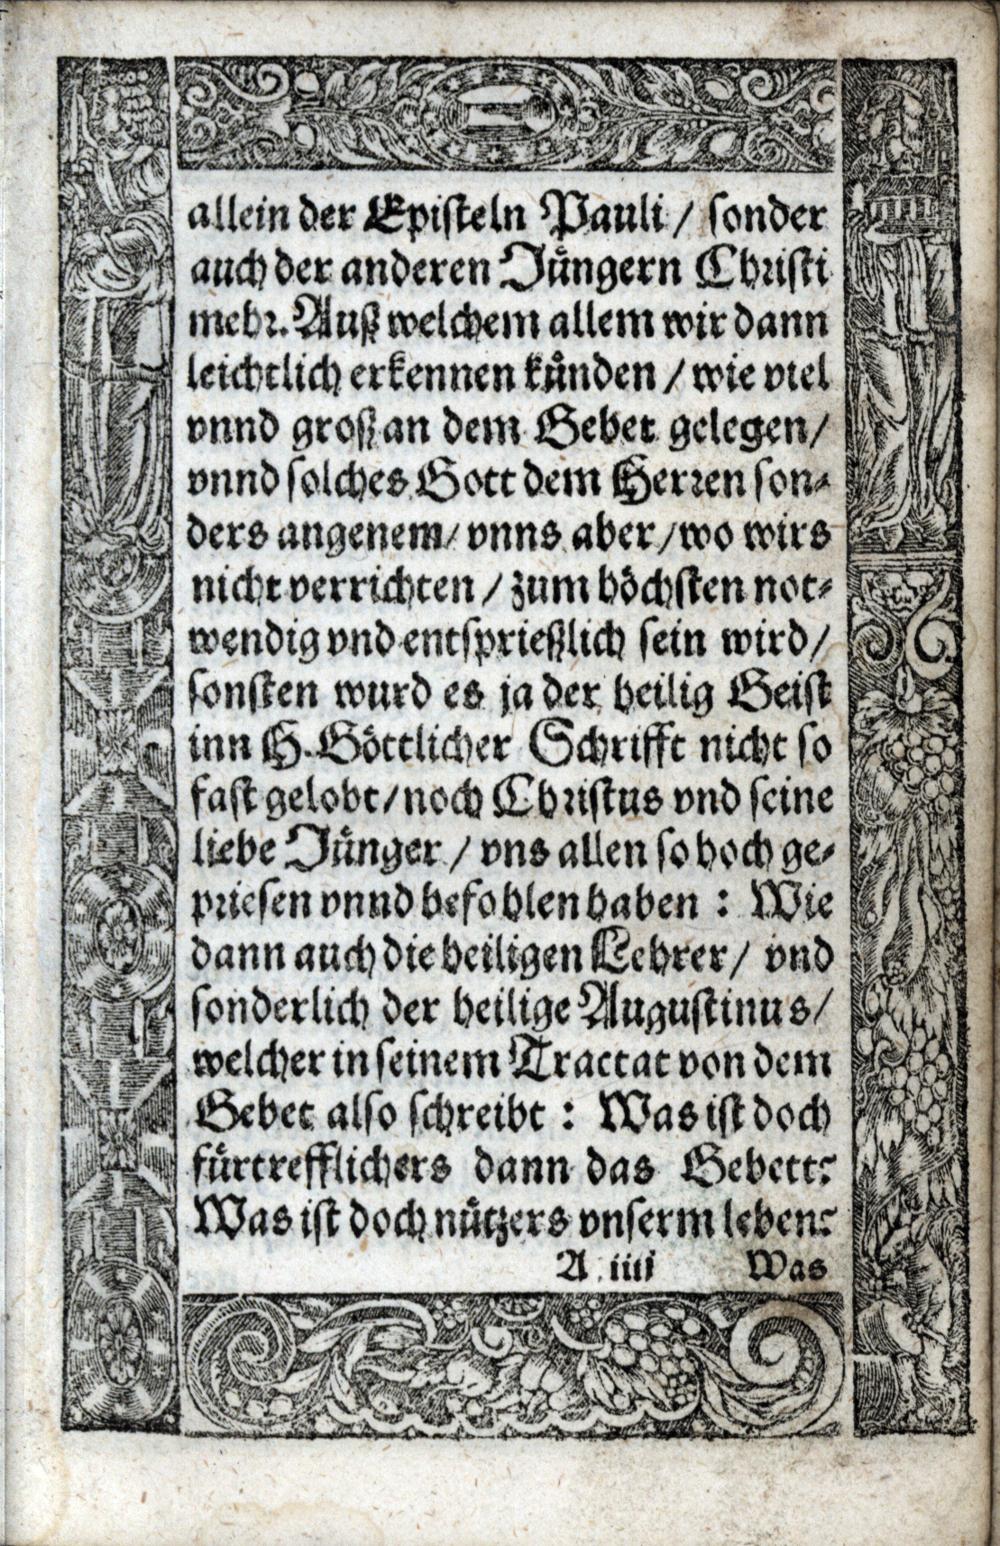 allein der Episteln Pauli / sonder
auch der anderen Jüngern Christi
mehr. Auß welchem allem wir dann
leichtlich erkennen künden / wie viel
vnnd groß an dem Gebet gelegen /
vnnd solches Gott dem Herren son-
ders angenem / vnns aber / wo wirs
nicht verrichten / zum höchsten not-
wendig vnd entsprießlich sein wird /
sonsten wurd es ja der heilig Geist
inn H. Göttlicher Schrifft nicht so
fast gelobt / noch Christus vnd seine
liebe Jünger / vns allen so hoch ge-
priesen vnnd befohlen haben : Wie
dann auch die heiligen Lehrer / vnd
sonderlich der heilige Augustinus /
welcher in seinem Tractat von dem
Gebet also schreibt : Was ist doch
fürtrefflichers dann das Gebett?
Was ist doch nützers vnserm leben?
A iiij Was